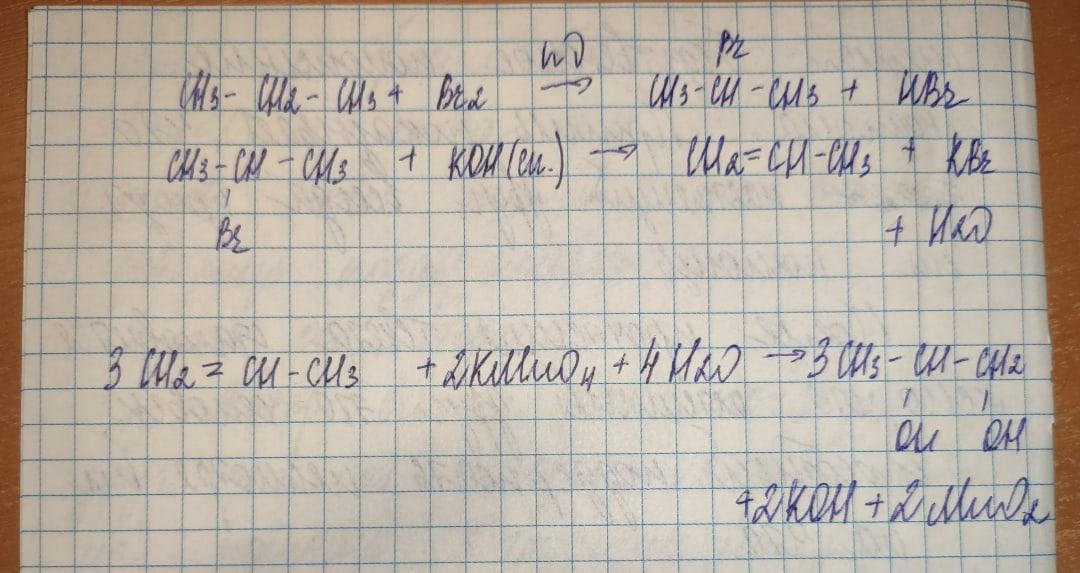 hν
Br
CH3- CH2- CH3 + Br2 → CH3-CH-CH3 + HBr
CH3-CH-CH3 + KOH(сп.) → CH2=CH-CH3 + KBr
Br
+ H2O
3 CH2 = CH-CH3 + 2KMnO4 + 4 H2O → 3 CH3- CH- CH2
OH OH
+2KOH + 2MnO2